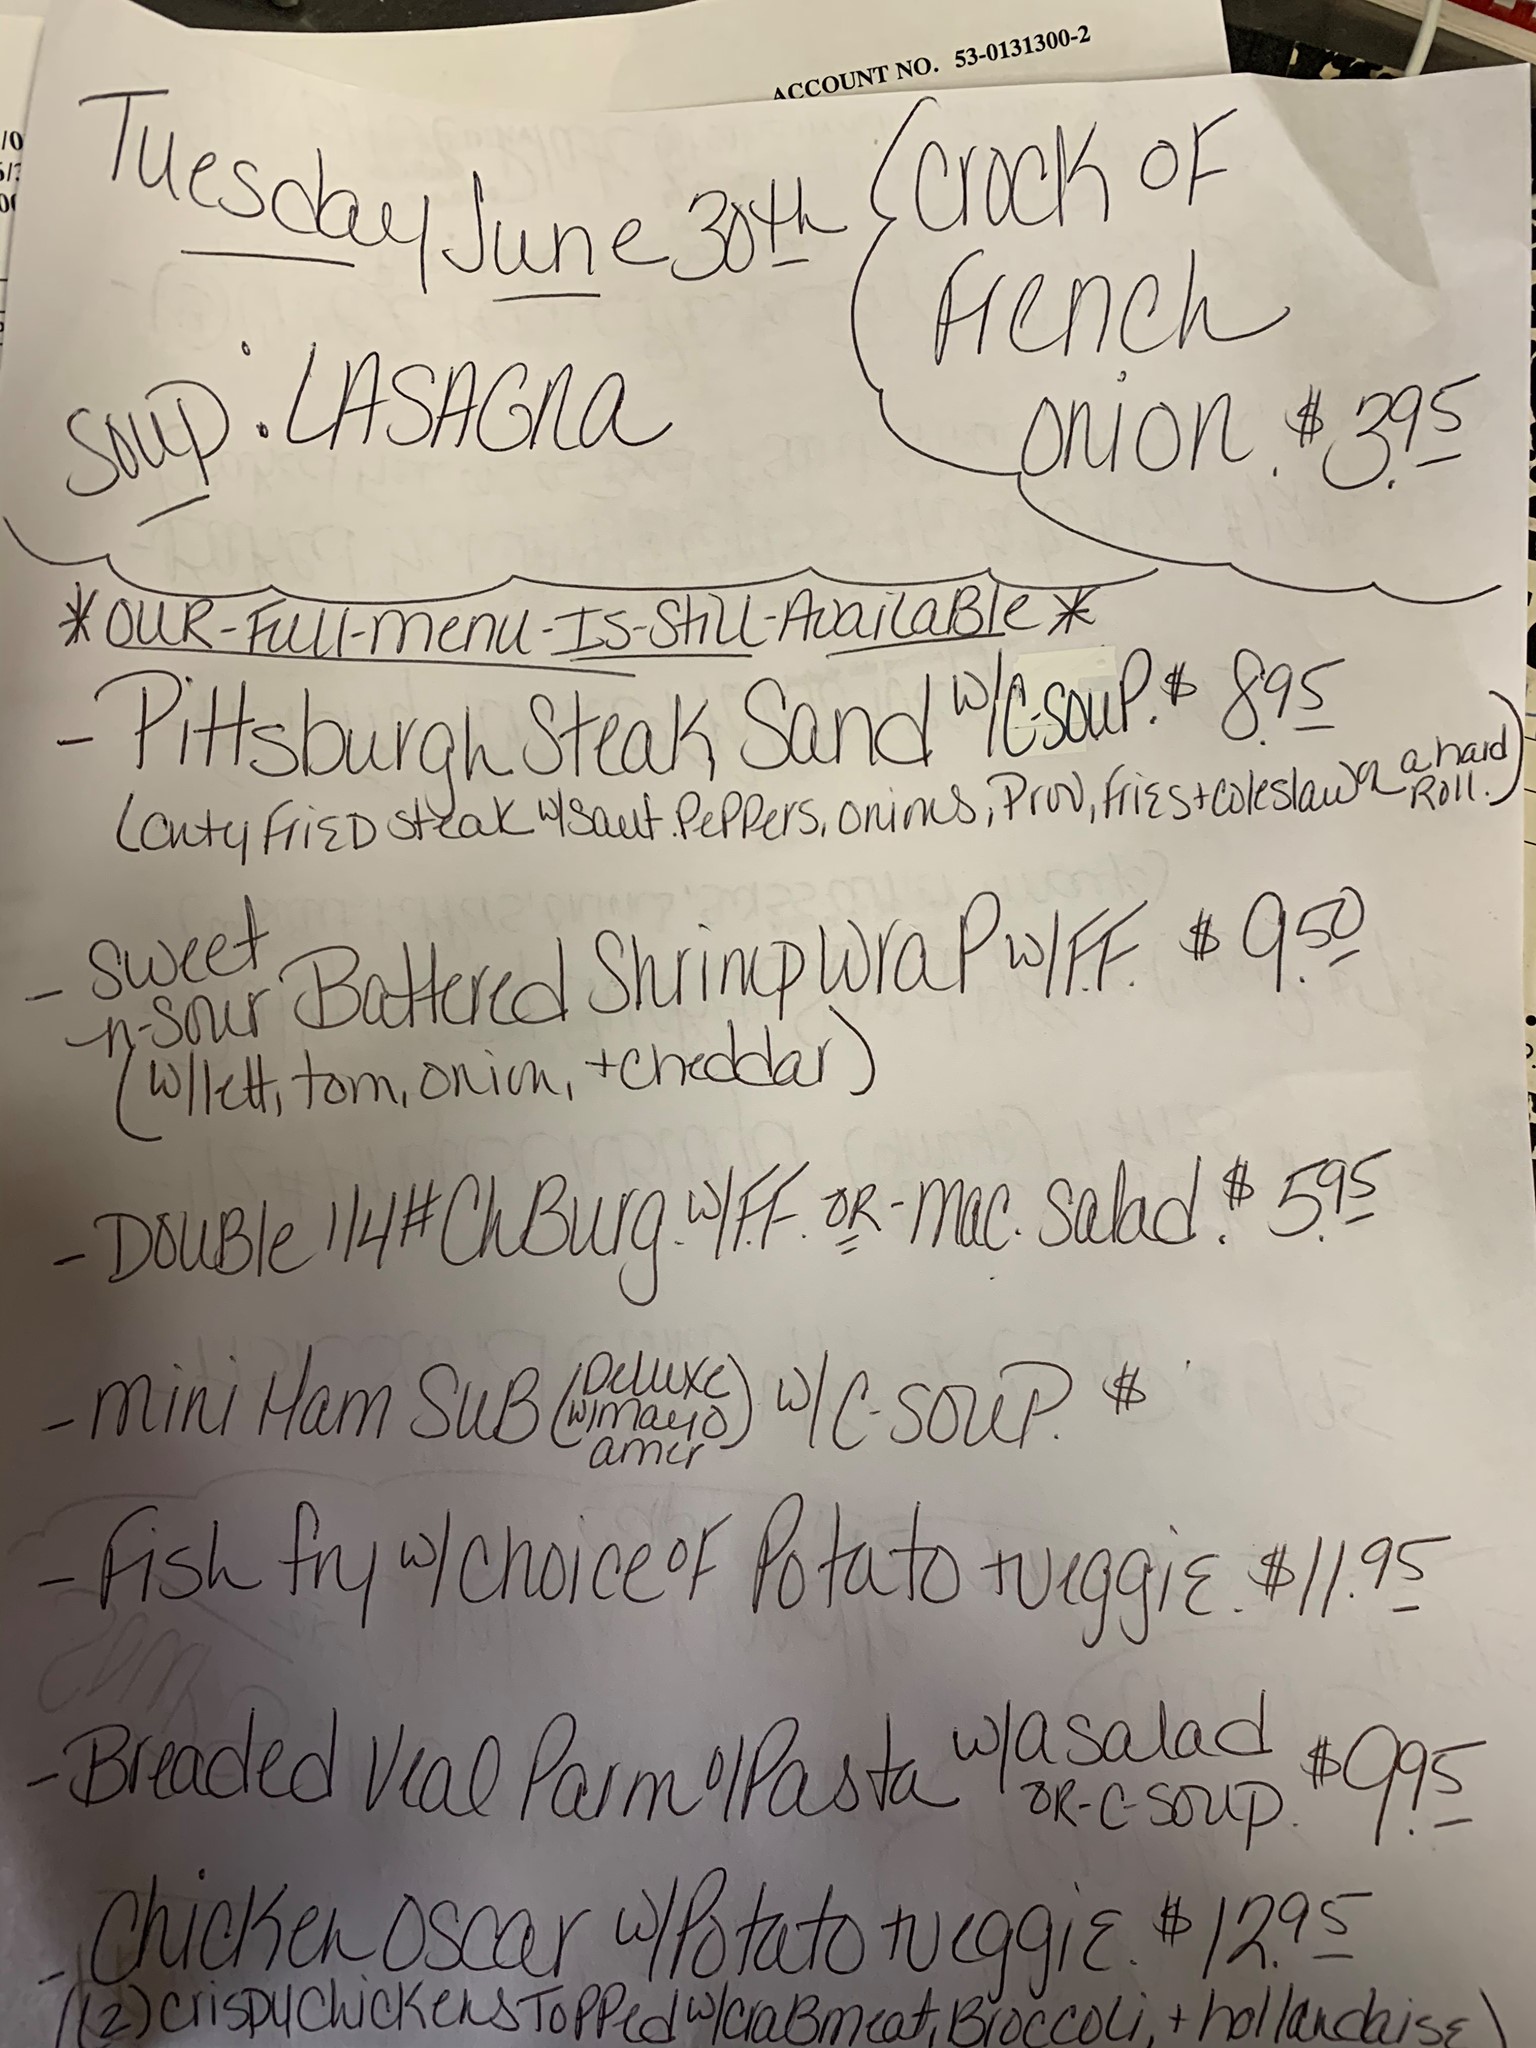 ACCOUNT NO. 53-0131300-2
Tuesday June 30th
Crock of
French
onion. $3.95
Soup: LASAGNA
*OUR-Full-menu-Is-Still-Available*
- Pittsburgh Steak Sand w/C-Soup. $8.95
(cnty FRIED steak w/saut. Peppers, onions, Prov, fries + coleslaw on a hard Roll.)
- Sweet
n-sour Battered Shrimp Wrap w/F.F. $9.50
(w/lett, tom, onion, + cheddar)
- Double 1/4# ChBurg. w/F.F. OR- mac. salad. $5.95
- mini Ham SUB (Deluxe w/mayo amer) w/C-Soup. $
- Fish fry w/choice of Potato + veggie. $11.95
- Breaded Veal Parm o/Pasta w/a salad
OR-C-Soup. $9.95
- Chicken Oscar w/Potato + veggie. $12.95
((2) crispy chickens Topped w/craBmeat, Broccoli, + hollandaise)